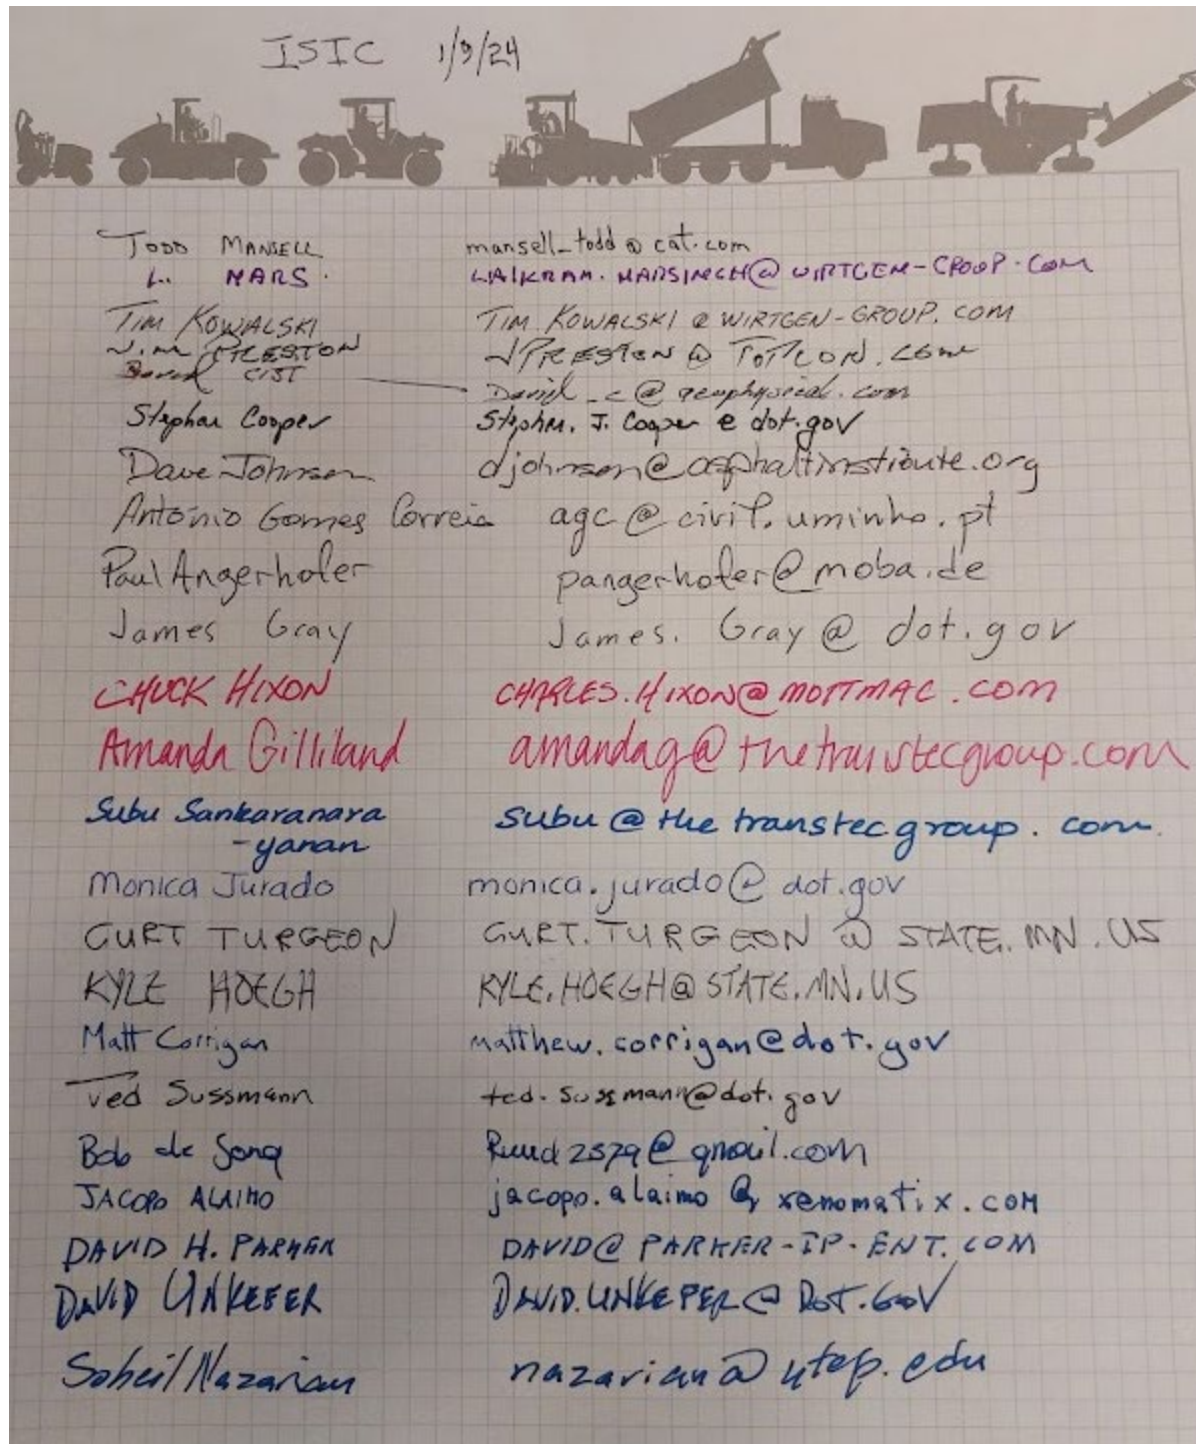 ISIC 1/9/24
TODD MANSELL mansell_todd@cat.com
L. NARS. LALKRAM.NARSINGH@WIRTGEN-GROUP.COM
TIM KOWALSKI TIM.KOWALSKI@WIRTGEN-GROUP.COM
PRESTON JPRESTON@TOPCON.COM
David CIST David_c@geophysical.com
Stephen Cooper Stephen.J.Cooper@dot.gov
Dave Johnson djohnson@asphaltinstitute.org
António Gomes Correia agc@civil.uminho.pt
Paul Angerhofer pangerhofer@moba.de
James Gray James.Gray@dot.gov
CHUCK HIXON CHARLES.HIXON@MOTTMAC.COM
Amanda Gilliland amandag@thetranstecgroup.com
Subu Sankaranara subu@thetranstecgroup.com.
-yanan
Monica Jurado monica.jurado@dot.gov
CURT TURGEON CURT.TURGEON@STATE.MN.US
KYLE HOEGH KYLE.HOEGH@STATE.MN.US
Matt Corrigan matthew.corrigan@dot.gov
Ted Sussmann ted.sussmann@dot.gov
Bob de Jong Ruud2579@gmail.com
JACOPO ALAIMO jacopo.alaimo@xenomatix.com
DAVID H. PARKER DAVID@PARKER-IP-ENT.COM
DAVID UNKEFER DAVID.UNKEFER@DOT.GOV
Soheil Nazarian nazarian@utep.edu